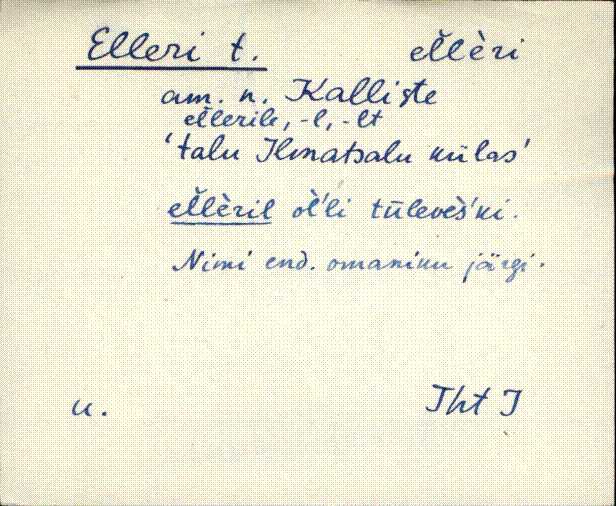 Elleri t. eľľèri
am. n. Kalliste
eľľerile, -l, -lt
'talu Ilmatsalu külas'
eľľèril oľ'li tūlevès'ki.
Nimi end. omaniku järgi.
u. Tht I